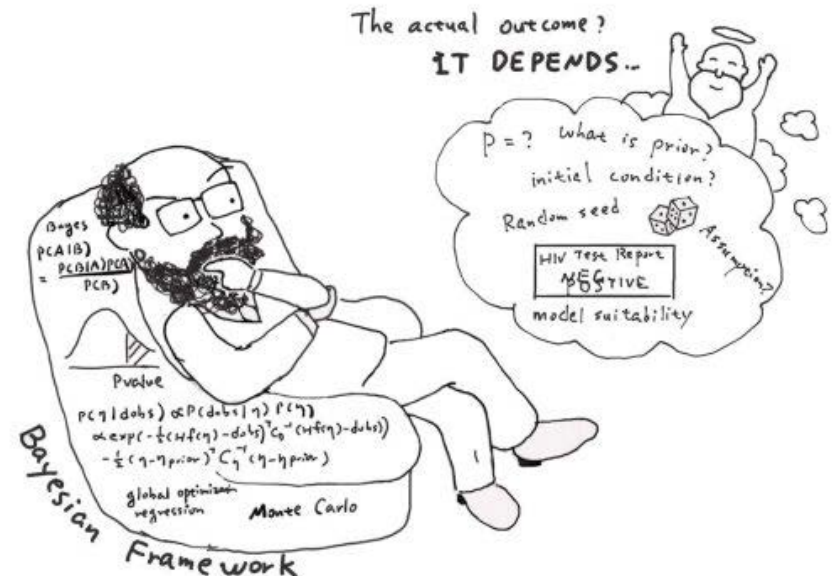 The actual outcome?
IT DEPENDS...
P = ? what is prior?
initial condition?
Random seed
Assumption?
HIV Test Report
model suitability
Bayes
P(A|B)
= P(B|A)P(A)
P(B)
Pvalue
P(η|dobs) ∝ P(dobs|η) P(η)
∝ exp(-½(Hf(η)-dobs)ᵀC_D⁻¹(Hf(η)-dobs))
-½(η-ηprior)ᵀC_η⁻¹(η-ηprior)
global optimization
regression
Monte Carlo
Bayesian Framework